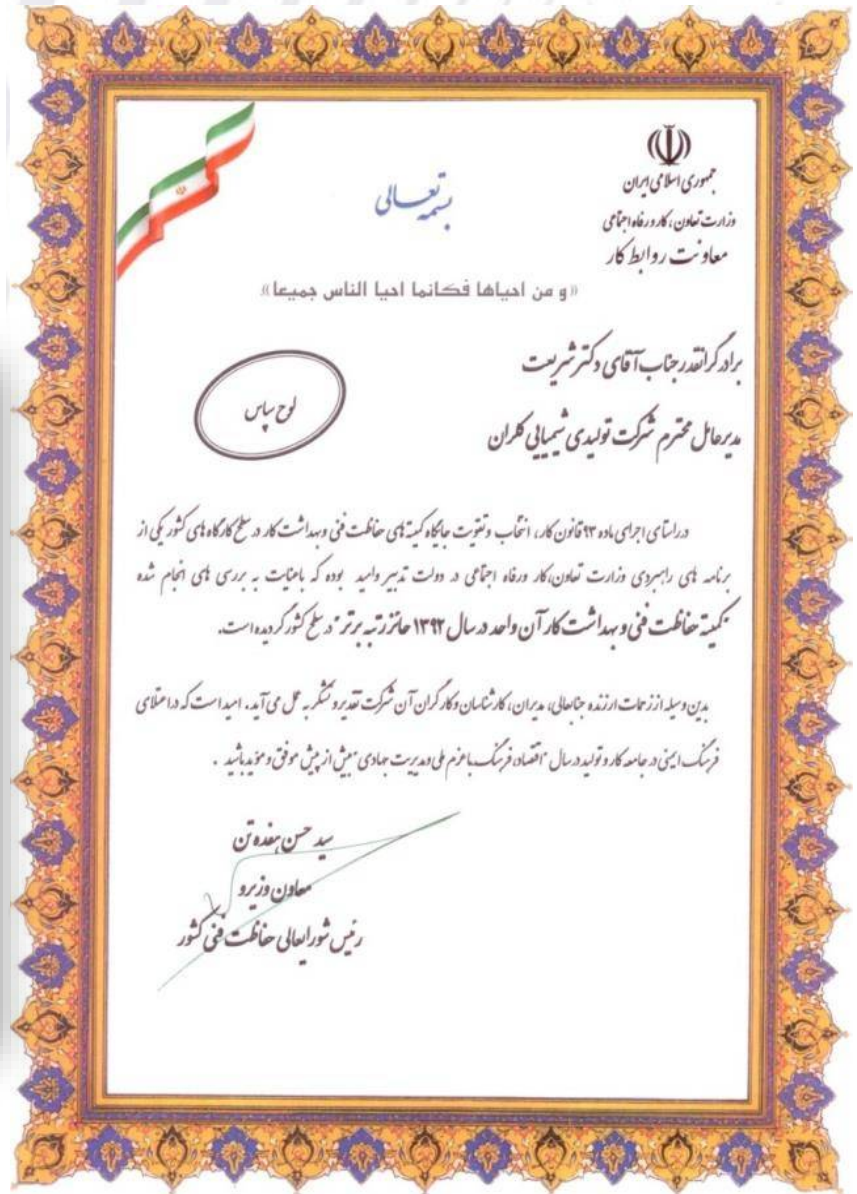 جمهوری اسلامی ایران
وزارت تعاون، کار و رفاه اجتماعی
معاونت روابط کار
بسمه تعالی
«و من احیاها فکانما احیا الناس جمیعا»
برادر گرانقدر جناب آقای دکتر شریعت
لوح سپاس
مدیرعامل محترم شرکت تولیدی شیمیایی کلران
در راستای اجرای ماده ۹۳ قانون کار، انتخاب و تقویت جایگاه کمیته های حفاظت فنی و بهداشت کار در سطح کارگاه های کشور یکی از
برنامه های راهبردی وزارت تعاون، کار و رفاه اجتماعی در دولت تدبیر و امید بوده که با عنایت به بررسی های انجام شده
"کمیته حفاظت فنی و بهداشت کار آن واحد در سال ۱۳۹۲ حائز رتبه برتر" در سطح کشور گردیده است.
بدین وسیله از زحمات ارزنده جنابعالی، مدیران، کارشناسان و کارگران آن شرکت تقدیر و تشکر به عمل می آید. امید است که در اعتلای
فرهنگ ایمنی در جامعه کار و تولید در سال "اقتصاد، فرهنگ با عزم ملی و مدیریت جهادی" بیش از پیش موفق و مؤید باشید.
سید حسن هفده تن
معاون وزیر و
رئیس شورایعالی حفاظت فنی کشور